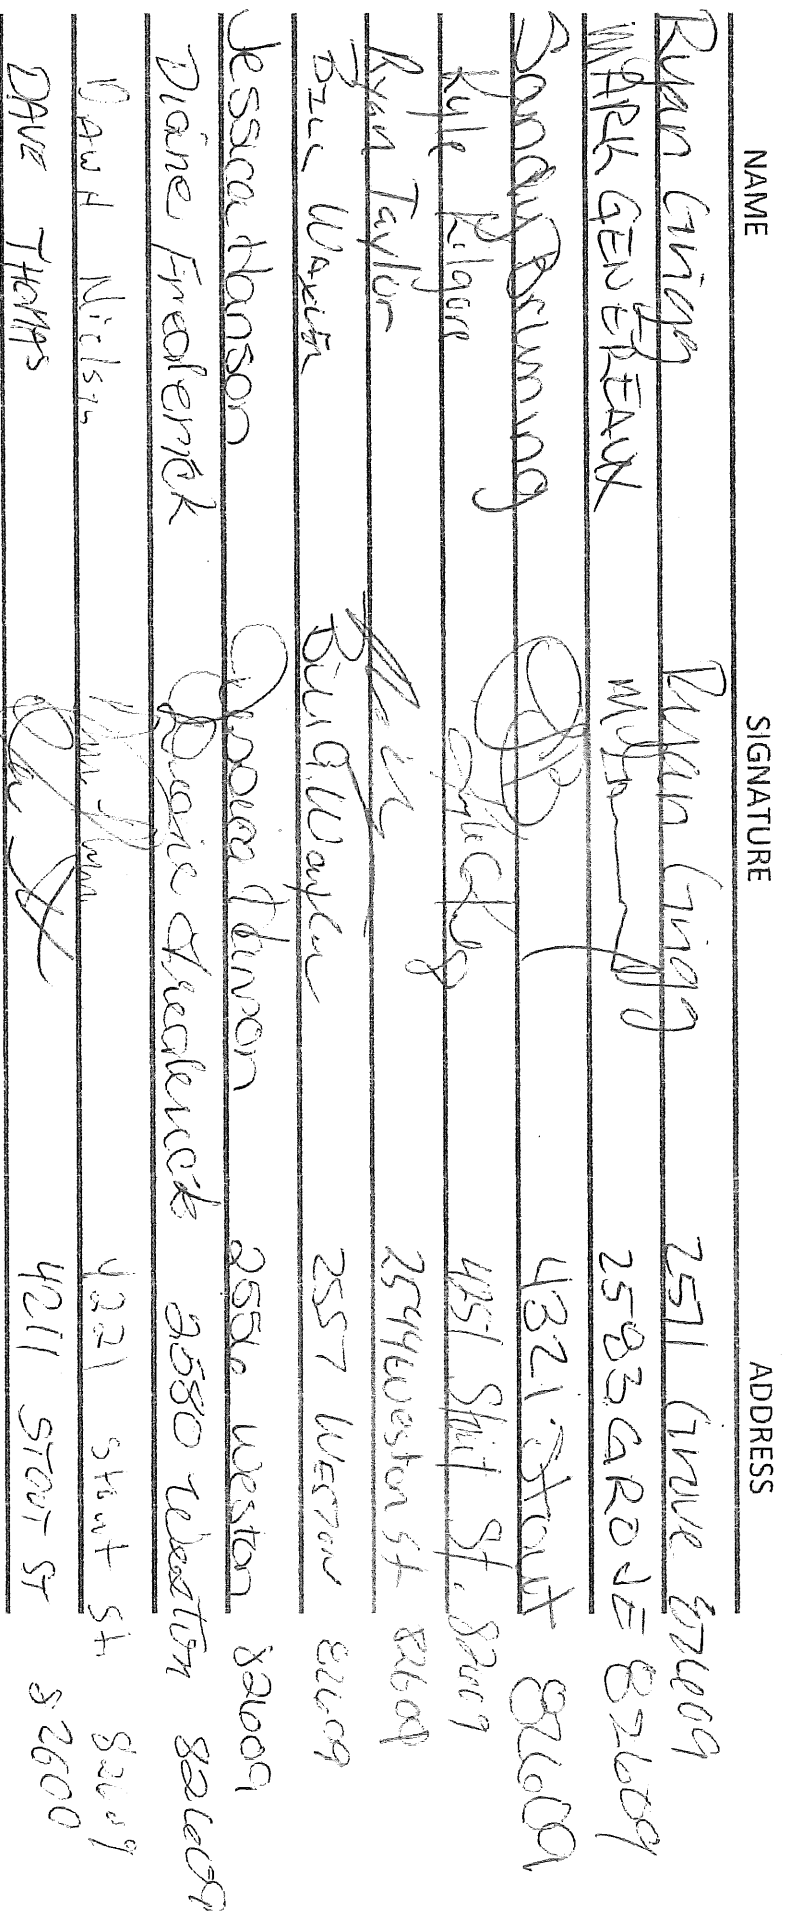 NAME SIGNATURE ADDRESS
Ryan Grigg Ryan Grigg 2571 Grove 82609
MARK GENEREAUX 2583 GROVE 82609
Sandy Bruning 4321 Stout 82609
Kyle Kilgore 4251 St. 82609
Ryan Taylor 2544 Weston St. 82609
BILL Bill G. 2557 WESTON 82609
Jessica Hanson Jessica Hanson 2556 Weston 82609
Diane Frederick Diane Frederick 2580 Weston 82609
Dawn Nielsen 4221 Stout St. 82609
DAVE THOMAS 4211 STOUT ST 82600